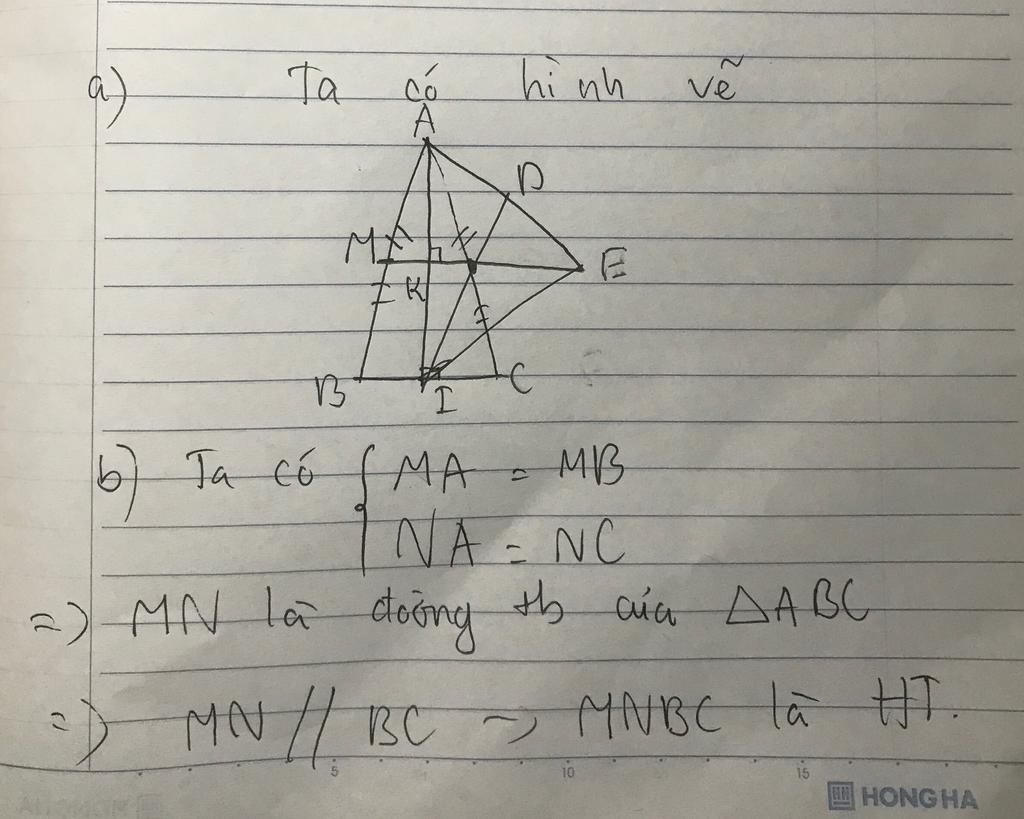 a) Ta có hình vẽ
A
D
M
E
K
B
I
C
b) Ta có { MA = MB
NA = NC
=) MN là đường tb của △ABC
=) MN // BC → MNBC là HT.
5 10 15
HONG HA